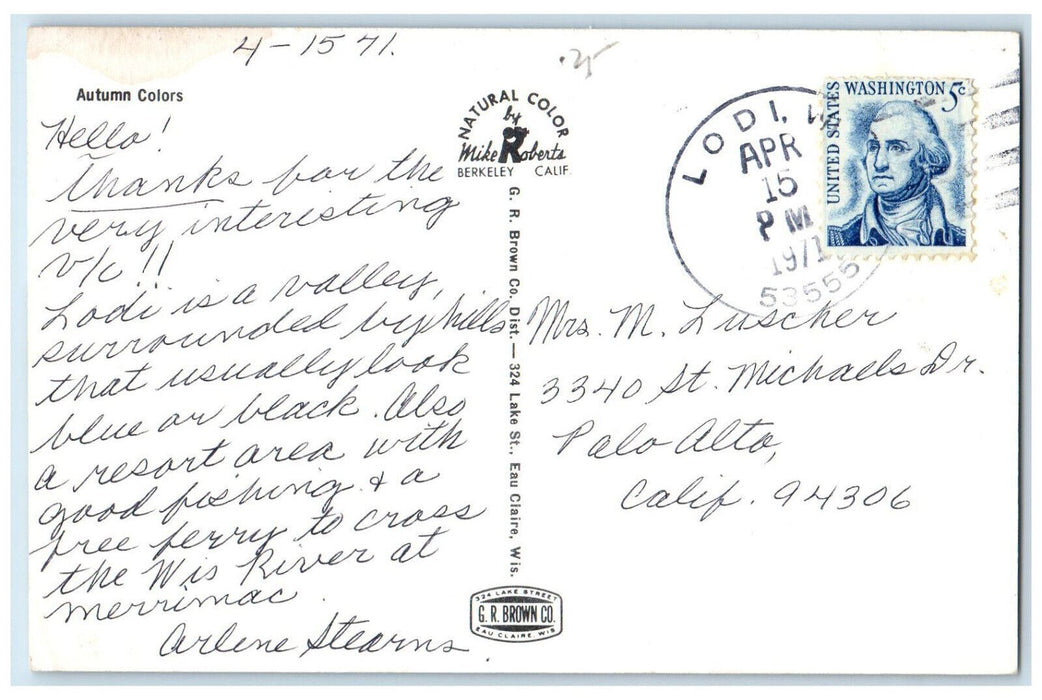 4-15 71.
.25
Autumn Colors
Hello!
Thanks for the
very interesting
v/c!!
Lodi is a valley,
surrounded by hills
that usually look
blue or black. Also
a resort area with
good fishing & a
free ferry to cross
the Wis River at
merrimac.
Arlene Stearns
NATURAL COLOR
by
Mike Roberts
BERKELEY CALIF.
G. R. Brown Co. Dist.—324 Lake St., Eau Claire, Wis.
324 LAKE STREET
G. R. BROWN CO.
EAU CLAIRE, WIS
LODI, W
APR
15
PM
1971
53555
UNITED STATES
WASHINGTON 5c
Mrs. M. Luscher
3340 St. Michaels Dr.
Palo Alto,
Calif. 94306